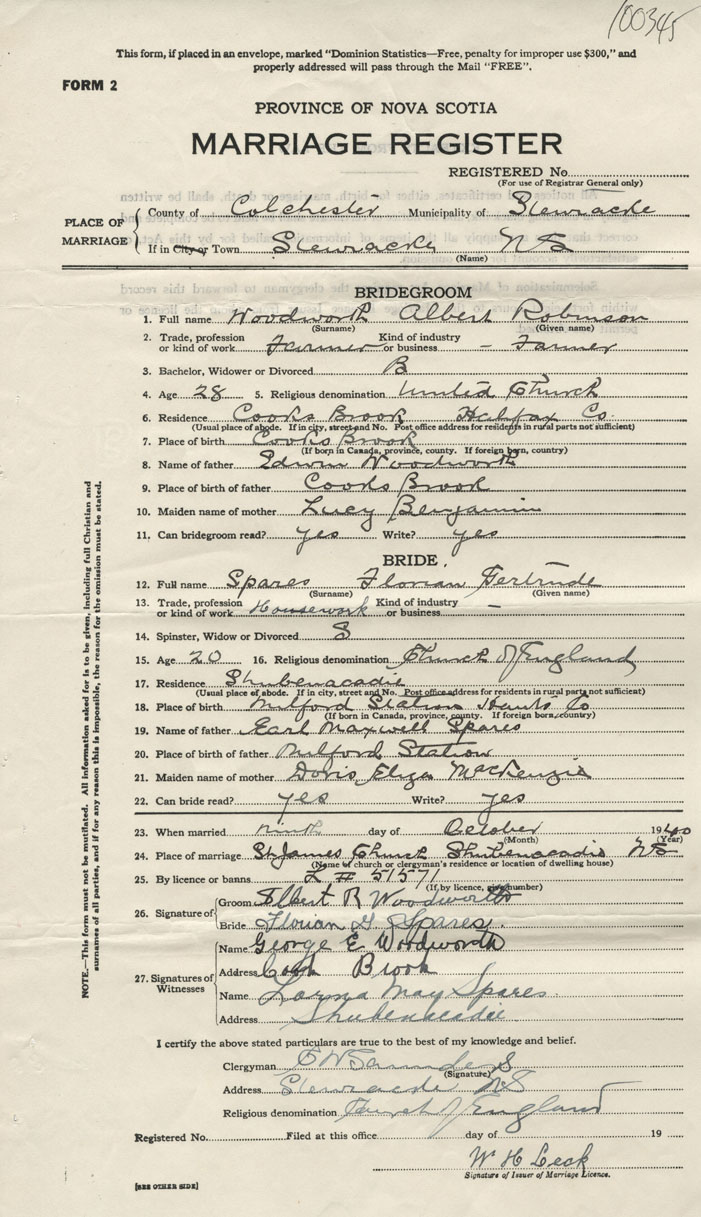 100345
This form, if placed in an envelope, marked "Dominion Statistics—Free, penalty for improper use $300," and
properly addressed will pass through the Mail "FREE".
FORM 2
PROVINCE OF NOVA SCOTIA
MARRIAGE REGISTER
REGISTERED No.
(For use of Registrar General only)
PLACE OF MARRIAGE
County of Colchester Municipality of Stewiacke
If in City or Town Stewiacke NS
(Name)
BRIDEGROOM
1. Full name Woodworth Albert Robinson
(Surname) (Given name)
2. Trade, profession or kind of work Farmer Kind of industry or business - Farmer
3. Bachelor, Widower or Divorced B
4. Age 28 5. Religious denomination United Church
6. Residence Cooks Brook Halifax Co.
(Usual place of abode. If in city, street and No. Post office address for residents in rural parts not sufficient)
7. Place of birth Cooks Brook
(If born in Canada, province, county. If foreign born, country)
8. Name of father Edwin Woodworth
9. Place of birth of father Cooks Brook
10. Maiden name of mother Lucy Benjamin
11. Can bridegroom read? yes Write? yes
BRIDE.
12. Full name Spares Florian Gertrude
(Surname) (Given name)
13. Trade, profession or kind of work Housework Kind of industry or business -
14. Spinster, Widow or Divorced S
15. Age 20 16. Religious denomination Church of England
17. Residence Shubenacadie
(Usual place of abode. If in city, street and No. Post office address for residents in rural parts not sufficient)
18. Place of birth Milford Station Hants Co
(If born in Canada, province, county. If foreign born, country)
19. Name of father Earl Maxwell Spares
20. Place of birth of father Milford Station
21. Maiden name of mother Doris Eliza MacKenzie
22. Can bride read? yes Write? yes
23. When married ninth day of October 1940
(Month) (Year)
24. Place of marriage St James Church Shubenacadie NS
(Name of church or clergyman's residence or location of dwelling house)
25. By licence or banns L # 51571
(If by licence, give number)
26. Signature of
Groom Albert R Woodworth
Bride Florian G Spares.
27. Signatures of Witnesses
Name George E Woodworth
Address Cook Brook
Name Lorna May Spares
Address Shubenacadie
I certify the above stated particulars are true to the best of my knowledge and belief.
Clergyman Saunders
(Signature)
Address Stewiacke NS
Religious denomination Church of England
Registered No. Filed at this office day of 19
W H Leck
Signature of Issuer of Marriage Licence.
[SEE OTHER SIDE]
NOTE.—This form must not be mutilated. All information asked for is to be given, including full Christian and
surnames of all parties, and if for any reason this is impossible, the reason for the omission must be stated.